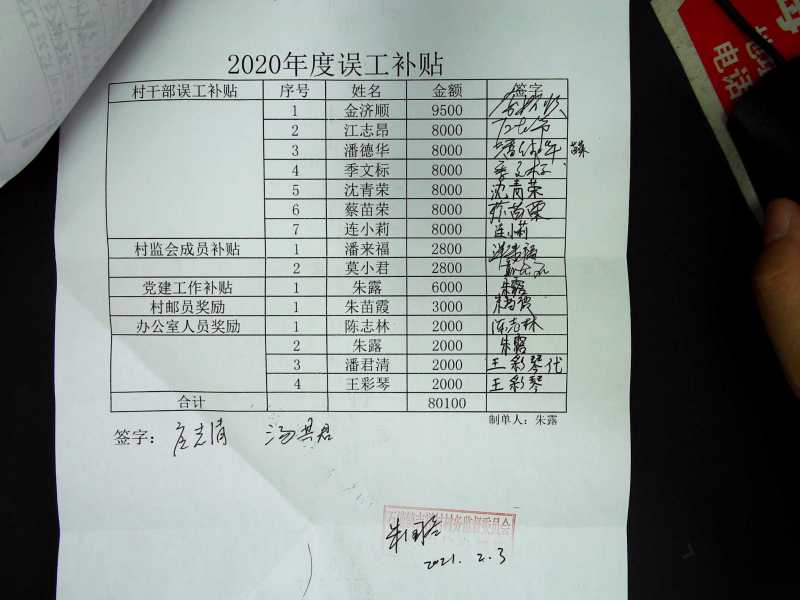 2020年度误工补贴
村干部误工补贴 序号 姓名 金额 签字
1 金济顺 9500
2 江志昂 8000
3 潘德华 8000
4 季文标 8000 季文标
5 沈青荣 8000 沈青荣
6 蔡苗荣 8000
7 连小莉 8000 连小莉
村监会成员补贴 1 潘来福 2800
2 莫小君 2800
党建工作补贴 1 朱露 6000 朱露
村邮员奖励 1 朱苗霞 3000 朱苗霞
办公室人员奖励 1 陈志林 2000 陈志林
2 朱露 2000 朱露
3 潘君清 2000 王彩琴代
4 王彩琴 2000 王彩琴
合计 80100
制单人：朱露
签字：
村务监督委员会
2021. 2. 3
电话